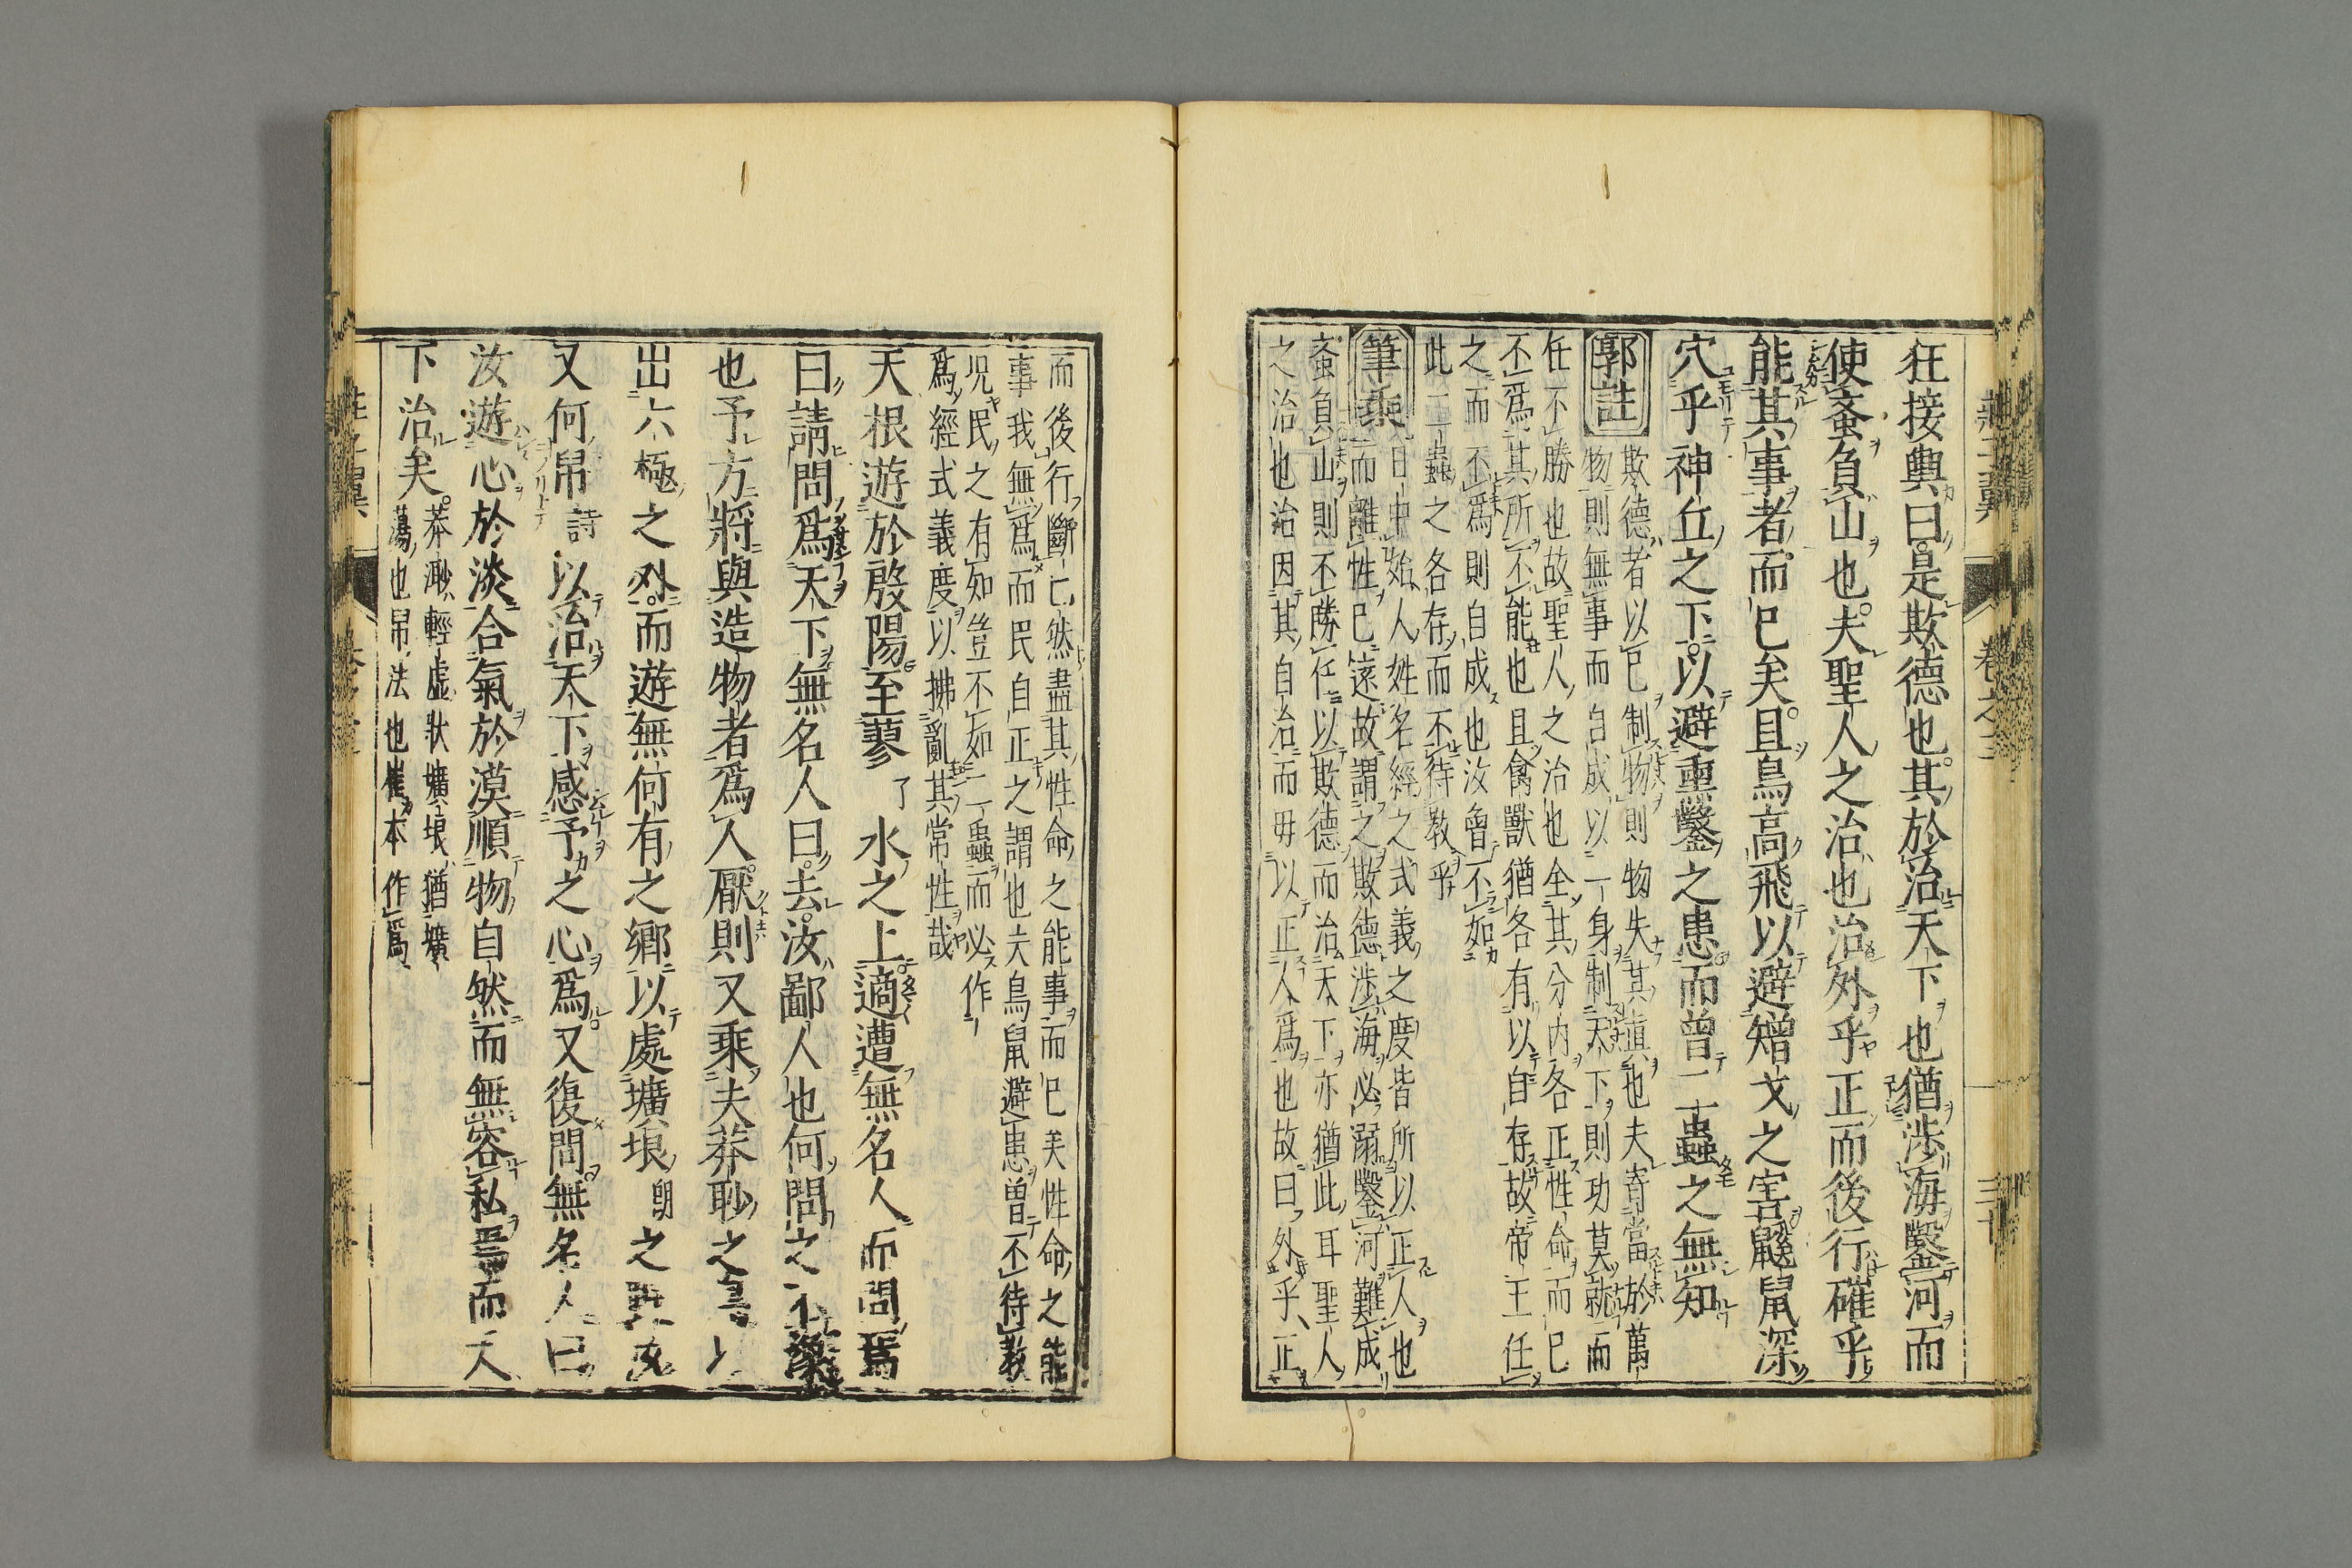 狂接輿曰是欺德也其於治天下也猶涉海鑿河而
使蚉負山也夫聖人之治也治外乎正而後行確乎
能其事者而已矣且鳥高飛以避矰弋之害鼷鼠深
穴乎神丘之下以避熏鑿之患而曾二蟲之無知
郭註
欺德者以已制物則物失其真也夫寄當於萬
物則無事而自成以一身制天下則功莫就而
任不勝也故聖人之治也全其分内各正性命而已
不爲其所不能也且禽獸猶各有以自存故帝王任
之而不爲則自成也汝曾不如
此二蟲之各存而不待教乎
筆乘
日中始人姓名經之式義之度皆所以正人也
而離性已遠故謂之欺德涉海必溺鑿河難成
蚉負山則不勝任以欺德而治天下亦猶此耳聖人
之治也治因其自治而毋以正人爲也故曰外乎正
莊子翼
卷之三
三十
而後行斷已然盡其性命之能事而已矣性命之能
事我無爲而民自正之謂也夫鳥鼠避患曾不待教
况民之有知豈不如二蟲而必作
爲經式義度以拂亂其常性哉
天根遊於殷陽至蓼了水之上適遭無名人而問焉
曰請問爲天下無名人曰去汝鄙人也何問之不
也予方將與造物者爲人厭則又乘夫莽眇之
出六極之外而遊無何有之鄉以處壙埌
之
又何帠詩以治天下感予之心爲又復問無名人曰
汝遊心於淡合氣於漠順物自然而無容私焉而天
下治矣
莽渺輕虛狀壙埌猶壙
蕩也帠法也崔本作爲